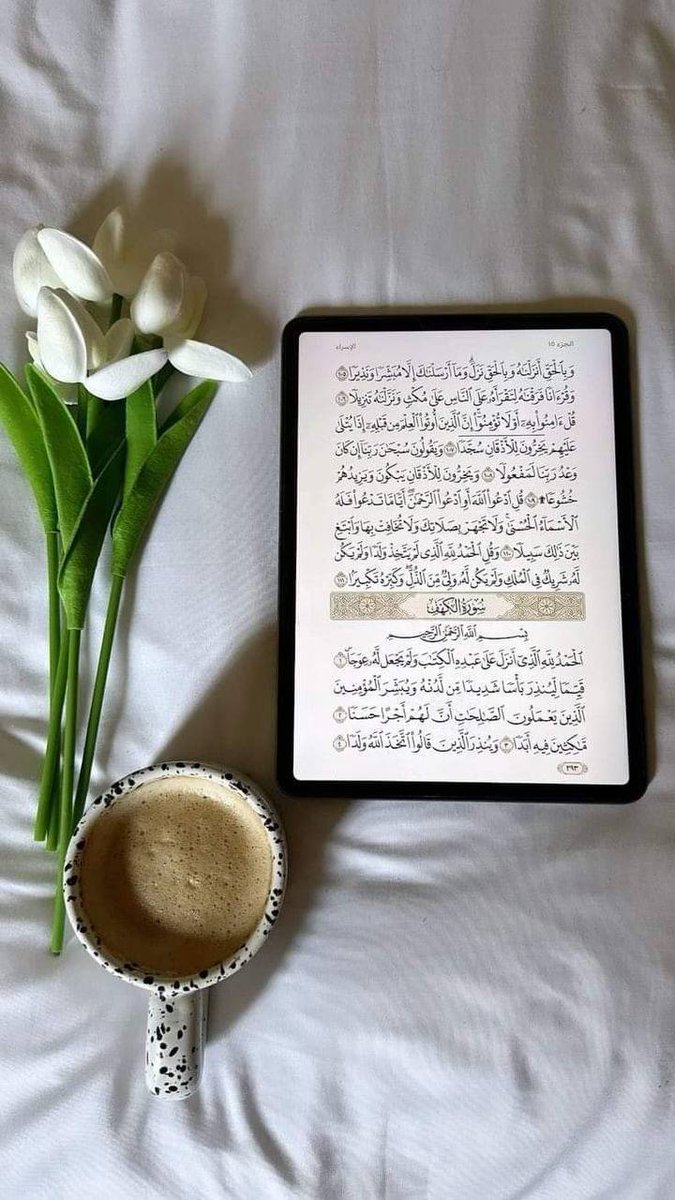 الجزء ١٥
الإسراء
وَبِالْحَقِّ أَنزَلْنَاهُ وَبِالْحَقِّ نَزَلَ ۗ وَمَا أَرْسَلْنَاكَ إِلَّا مُبَشِّرًا وَنَذِيرًا ١٠٥
وَقُرْءَانًا فَرَقْنَاهُ لِتَقْرَأَهُ عَلَى النَّاسِ عَلَىٰ مُكْثٍ وَنَزَّلْنَاهُ تَنزِيلًا ١٠٦
قُلْ ءَامِنُوا بِهِ أَوْ لَا تُؤْمِنُوا ۚ إِنَّ الَّذِينَ أُوتُوا الْعِلْمَ مِن قَبْلِهِ إِذَا يُتْلَىٰ
عَلَيْهِمْ يَخِرُّونَ لِلْأَذْقَانِ سُجَّدًا ١٠٧ وَيَقُولُونَ سُبْحَٰنَ رَبِّنَا إِن كَانَ
وَعْدُ رَبِّنَا لَمَفْعُولًا ١٠٨ وَيَخِرُّونَ لِلْأَذْقَانِ يَبْكُونَ وَيَزِيدُهُمْ
خُشُوعًا ۩ ١٠٩ قُلِ ادْعُوا اللَّهَ أَوِ ادْعُوا الرَّحْمَٰنَ ۖ أَيًّا مَّا تَدْعُوا فَلَهُ
الْأَسْمَاءُ الْحُسْنَىٰ ۚ وَلَا تَجْهَرْ بِصَلَاتِكَ وَلَا تُخَافِتْ بِهَا وَابْتَغِ
بَيْنَ ذَٰلِكَ سَبِيلًا ١١٠ وَقُلِ الْحَمْدُ لِلَّهِ الَّذِي لَمْ يَتَّخِذْ وَلَدًا وَلَمْ يَكُن
لَّهُ شَرِيكٌ فِي الْمُلْكِ وَلَمْ يَكُن لَّهُ وَلِيٌّ مِّنَ الذُّلِّ ۖ وَكَبِّرْهُ تَكْبِيرًا ١١١
سُورَةُ الكَهْفِ
بِسْمِ اللَّهِ الرَّحْمَٰنِ الرَّحِيمِ
الْحَمْدُ لِلَّهِ الَّذِي أَنزَلَ عَلَىٰ عَبْدِهِ الْكِتَٰبَ وَلَمْ يَجْعَل لَّهُ عِوَجًا ۜ ١
قَيِّمًا لِّيُنذِرَ بَأْسًا شَدِيدًا مِّن لَّدُنْهُ وَيُبَشِّرَ الْمُؤْمِنِينَ
الَّذِينَ يَعْمَلُونَ الصَّٰلِحَٰتِ أَنَّ لَهُمْ أَجْرًا حَسَنًا ٢
مَّٰكِثِينَ فِيهِ أَبَدًا ٣ وَيُنذِرَ الَّذِينَ قَالُوا اتَّخَذَ اللَّهُ وَلَدًا ٤
٢٩٣